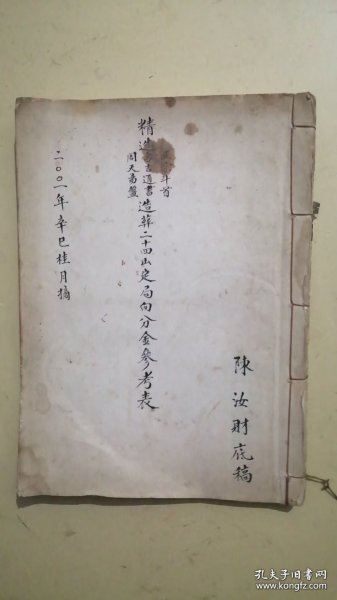 陳汝財底稿
精造
吉通書
周天為盤
造葬二十四山定局向分金參考表
二〇〇一年辛巳桂月摘
孔夫子旧书网
www.kongfz.com